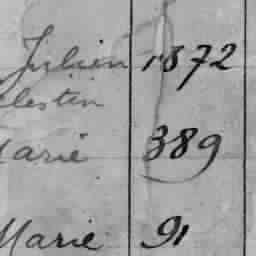 Julien 1872
elestin
Marie 389
Marie 91